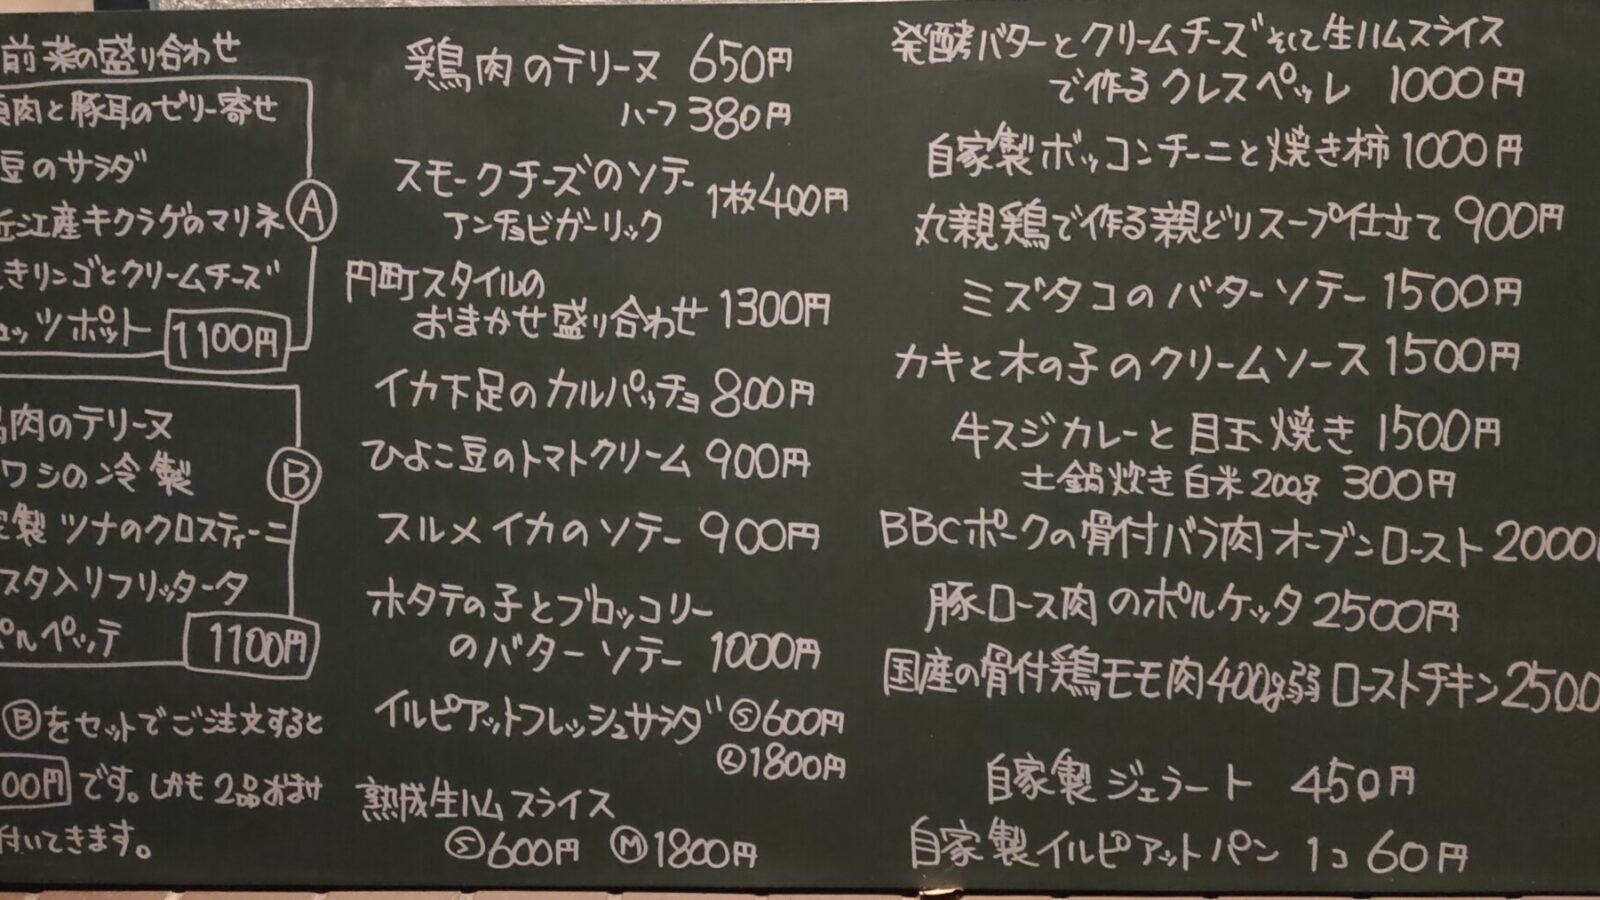 前菜の盛り合わせ
肉と豚耳のゼリー寄せ
豆のサラダ
近江産キクラゲのマリネ
きリンゴとクリームチーズ
ェッツポット 1100円
Ⓐ
肉のテリーヌ
ワシの冷製
製ツナのクロスティーニ
スタ入リフリッタータ
ポルペッテ 1100円
Ⓑ
Ⓑをセットでご注文すると
00円です。しかも2品おまけ
付いてきます。
鶏肉のテリーヌ 650円
ハーフ 380円
スモークチーズのソテー 1枚400円
アンチョビガーリック
円町スタイルの
おまかせ盛り合わせ 1300円
イカ下足のカルパッチョ 800円
ひよこ豆のトマトクリーム 900円
スルメイカのソテー 900円
ホタテの子とブロッコリー
のバターソテー 1000円
イルピアットフレッシュサラダ Ⓢ600円
Ⓛ1800円
熟成生ハムスライス
Ⓢ600円 Ⓜ1800円
発酵バターとクリームチーズそして生ハムスライス
で作るクレスペッレ 1000円
自家製ボッコンチーニと焼き柿 1000円
丸親鶏で作る親どりスープ仕立て 900円
ミズダコのバターソテー 1500円
カキと木の子のクリームソース 1500円
牛スジカレーと目玉焼き 1500円
土鍋炊き白米200g 300円
BBCポークの骨付バラ肉オーブンロースト 2000円
豚ロース肉のポルケッタ 2500円
国産の骨付鶏モモ肉400g弱ローストチキン 2500
自家製ジェラート 450円
自家製イルピアットパン 1コ 60円